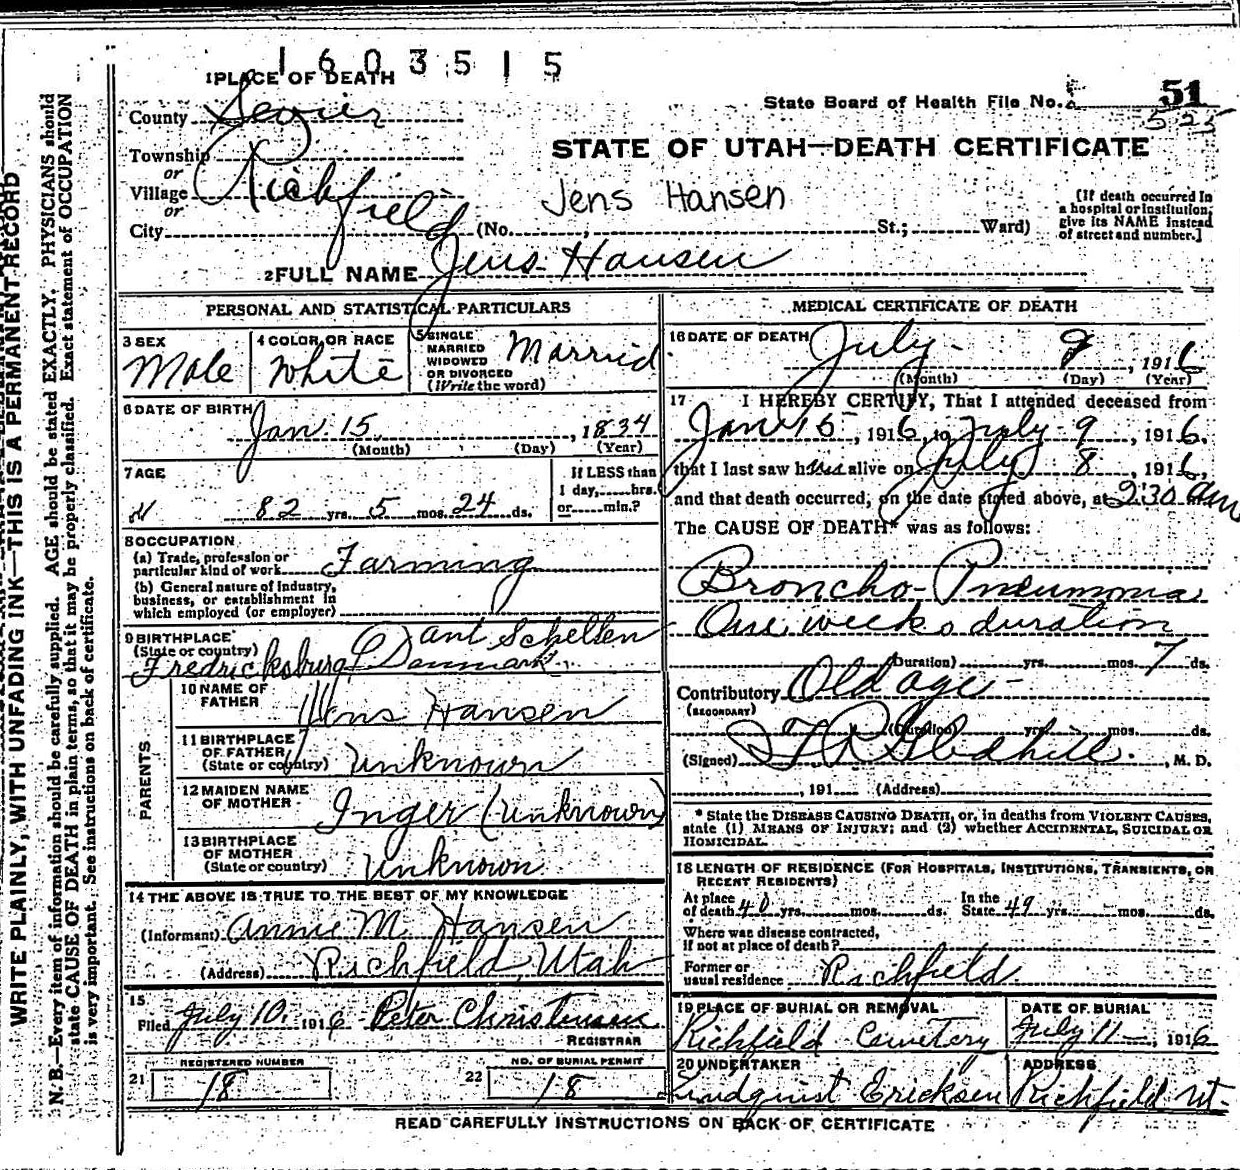 1603515
1 PLACE OF DEATH
State Board of Health File No. 51
525
County Sevier
STATE OF UTAH—DEATH CERTIFICATE
Township
or
Village Richfield
or
City (No. , St.; Ward)
Jens Hansen
[If death occurred in
a hospital or institution,
give its NAME instead
of street and number.]
2 FULL NAME Jens Hansen
PERSONAL AND STATISTICAL PARTICULARS
3 SEX
Male
4 COLOR OR RACE
White
5 SINGLE
MARRIED
WIDOWED
OR DIVORCED
(Write the word)
Married
6 DATE OF BIRTH
Jan. 15, 1834
(Month) (Day) (Year)
7 AGE
82 yrs. 5 mos. 24 ds.
If LESS than
1 day, hrs.
or min.?
8 OCCUPATION
(a) Trade, profession or
particular kind of work Farming
(b) General nature of industry,
business, or establishment in
which employed (or employer)
9 BIRTHPLACE
(State or country)
Fredricksburg Denmark
PARENTS
10 NAME OF
FATHER
Hans Hansen
11 BIRTHPLACE
OF FATHER
(State or country) Unknown
12 MAIDEN NAME
OF MOTHER
Inger (unknown)
13 BIRTHPLACE
OF MOTHER
(State or country) Unknown
14 THE ABOVE IS TRUE TO THE BEST OF MY KNOWLEDGE
(Informant) Annie M. Hansen
(Address) Richfield, Utah
15
Filed July 10, 1916 Peter Christensen
REGISTRAR
REGISTERED NUMBER
21 18
NO. OF BURIAL PERMIT
22 18
MEDICAL CERTIFICATE OF DEATH
16 DATE OF DEATH
July 9, 1916
(Month) (Day) (Year)
17 I HEREBY CERTIFY, That I attended deceased from
Jan 15, 1916, to July 9, 1916.
that I last saw him alive on July 8, 1916,
and that death occurred, on the date stated above, at 2:30 am
The CAUSE OF DEATH* was as follows:
Broncho-Pneumonia
One weeks duration
(Duration) yrs. mos. 7 ds.
Contributory Old age
(SECONDARY)
(Duration) yrs. mos. ds.
(Signed) Gledhill, M. D.
, 191 (Address)
* State the DISEASE CAUSING DEATH, or, in deaths from VIOLENT CAUSES,
state (1) MEANS OF INJURY; and (2) whether ACCIDENTAL, SUICIDAL OR
HOMICIDAL.
18 LENGTH OF RESIDENCE (FOR HOSPITALS, INSTITUTIONS, TRANSIENTS, OR
RECENT RESIDENTS)
At place
of death 40 yrs. mos. ds.
In the
State 49 yrs. mos. ds.
Where was disease contracted,
if not at place of death?
Former or
usual residence Richfield
19 PLACE OF BURIAL OR REMOVAL
Richfield Cemetery
DATE OF BURIAL
July 11, 1916
20 UNDERTAKER
Lindquist Ericksen
ADDRESS
Richfield Ut.
READ CAREFULLY INSTRUCTIONS ON BACK OF CERTIFICATE
WRITE PLAINLY, WITH UNFADING INK—THIS IS A PERMANENT RECORD
N. B.—Every item of information should be carefully supplied. AGE should be stated EXACTLY. PHYSICIANS should
state CAUSE OF DEATH in plain terms, so that it may be properly classified. Exact statement of OCCUPATION
is very important. See instructions on back of certificate.